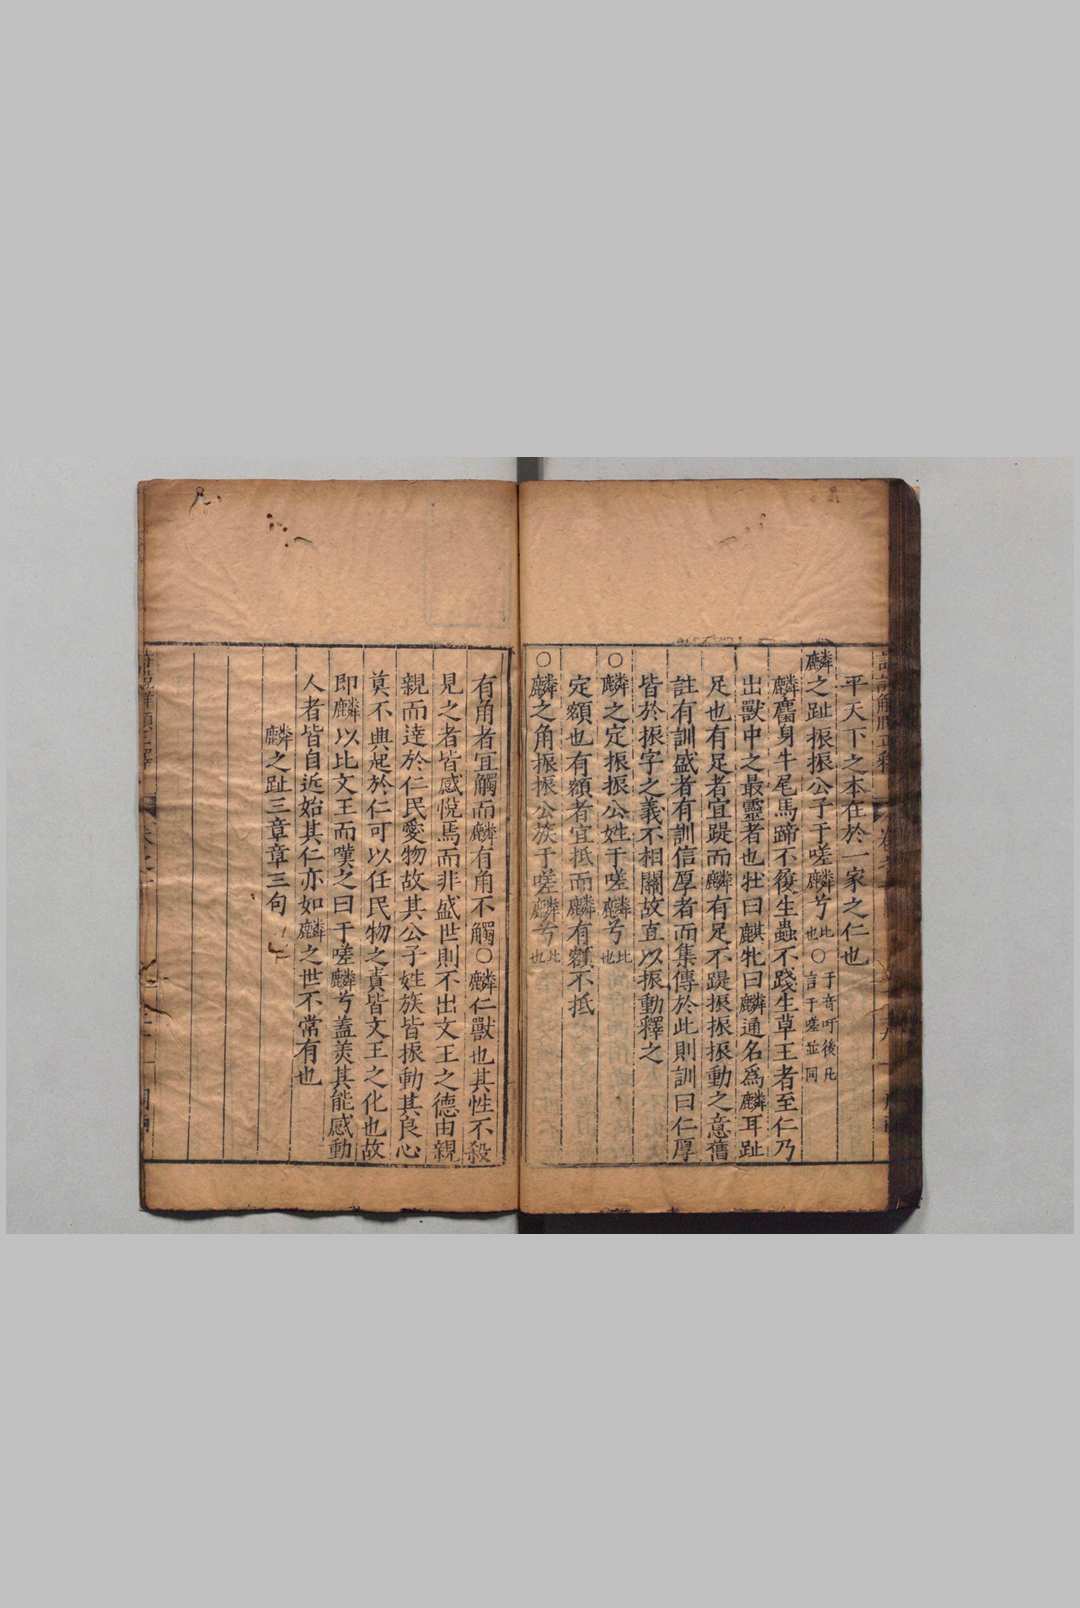 平天下之本在於一家之仁也
麟之趾振振公子于嗟麟兮比也○于音吁後凡言于嗟並同
麟麕身牛尾馬蹄不履生蟲不踐生草王者至仁乃
出獸中之最靈者也牡曰麒牝曰麟通名爲麟耳趾
足也有足者宜踶而麟有足不踶振振振動之意舊
註有訓盛者有訓信厚者而集傳於此則訓曰仁厚
皆於振字之義不相關故直以振動釋之
○麟之定振振公姓于嗟麟兮比也
定額也有額者宜抵而麟有額不抵
○麟之角振振公族于嗟麟兮比也
有角者宜觸而麟有角不觸○麟仁獸也其性不殺
見之者皆感悅焉而非盛世則不出文王之德由親
親而達於仁民愛物故其公子姓族皆振動其良心
莫不興起於仁可以任民物之責皆文王之化也故
即麟以比文王而嘆之曰于嗟麟兮蓋美其能感動
人者皆自近始其仁亦如麟之世不常有也
麟之趾三章章三句